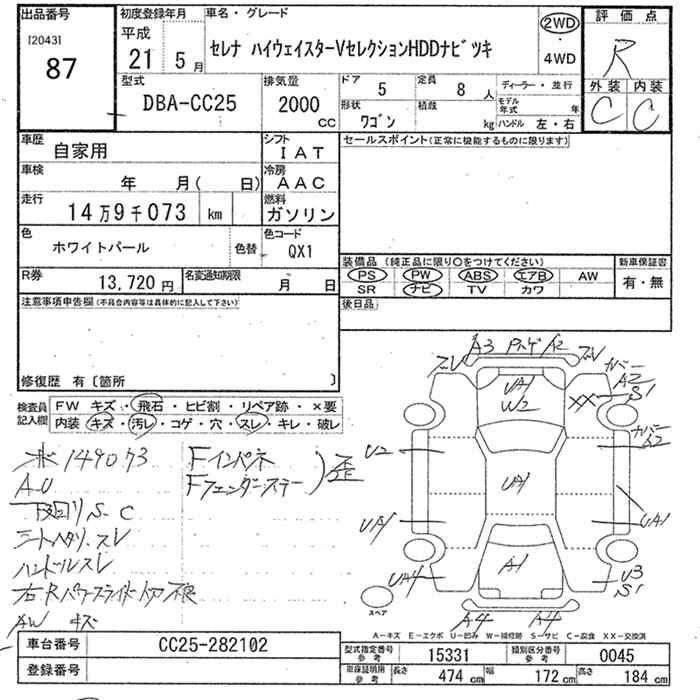 出品番号
[2043]
87
初度登録年月
平成
21 5月
車名・グレード
セレナ ハイウェイスターVセレクションHDDナビツキ
2WD
・
4WD
評価点
R
外装 内装
C C
型式
DBA-CC25
排気量
2000
CC
ドア
5
定員
8人
ディーラー・並行
形状
ワゴン
積載
kg
モデル年式 年
ハンドル 左・右
車歴
自家用
シフト
IAT
車検
年 月( 日)
冷房
AAC
走行
14万9千073 km
燃料
ガソリン
色
ホワイトパール
色替
色コード
QX1
R券
13,720円
名変通知期限
月 日
セールスポイント(正常に機能するものに限ります)
装備品 (純正品に限り○をつけてください)
PS PW ABS エアB AW
SR ナビ TV カワ
新車保証書
有・無
後日品
注意事項申告欄(不具合内容等は具体的に記入して下さい)
修復歴 有〔箇所 〕
検査員
記入欄
FW キズ・飛石・ヒビ割・リペア跡・×要
内装 キズ・汚レ・コゲ・穴・スレ・キレ・破レ
149073
A.U
下回りS.C
シートヘタリ.スレ
ハンドルスレ
右Rパワースライド切不良
AW キズ
Fインパネ
Fフェンダーステー
歪
A3
A2
ズレ
ズレ
カバー
A2
S1
XX
UA1
W2
カバー
A2
U2
UA1
UA1
UA1
A1
UA4
U3
S1
A4
A4
スペア
A－キズ E－エクボ U－凹み W－補修跡 S－サビ C－腐食 XX－交換済
車台番号
CC25-282102
登録番号
型式指定番号
参考
15331
類別区分番号
参考
0045
車庫証明用
参考
長さ 474 cm
幅 172 cm
高さ 184 cm